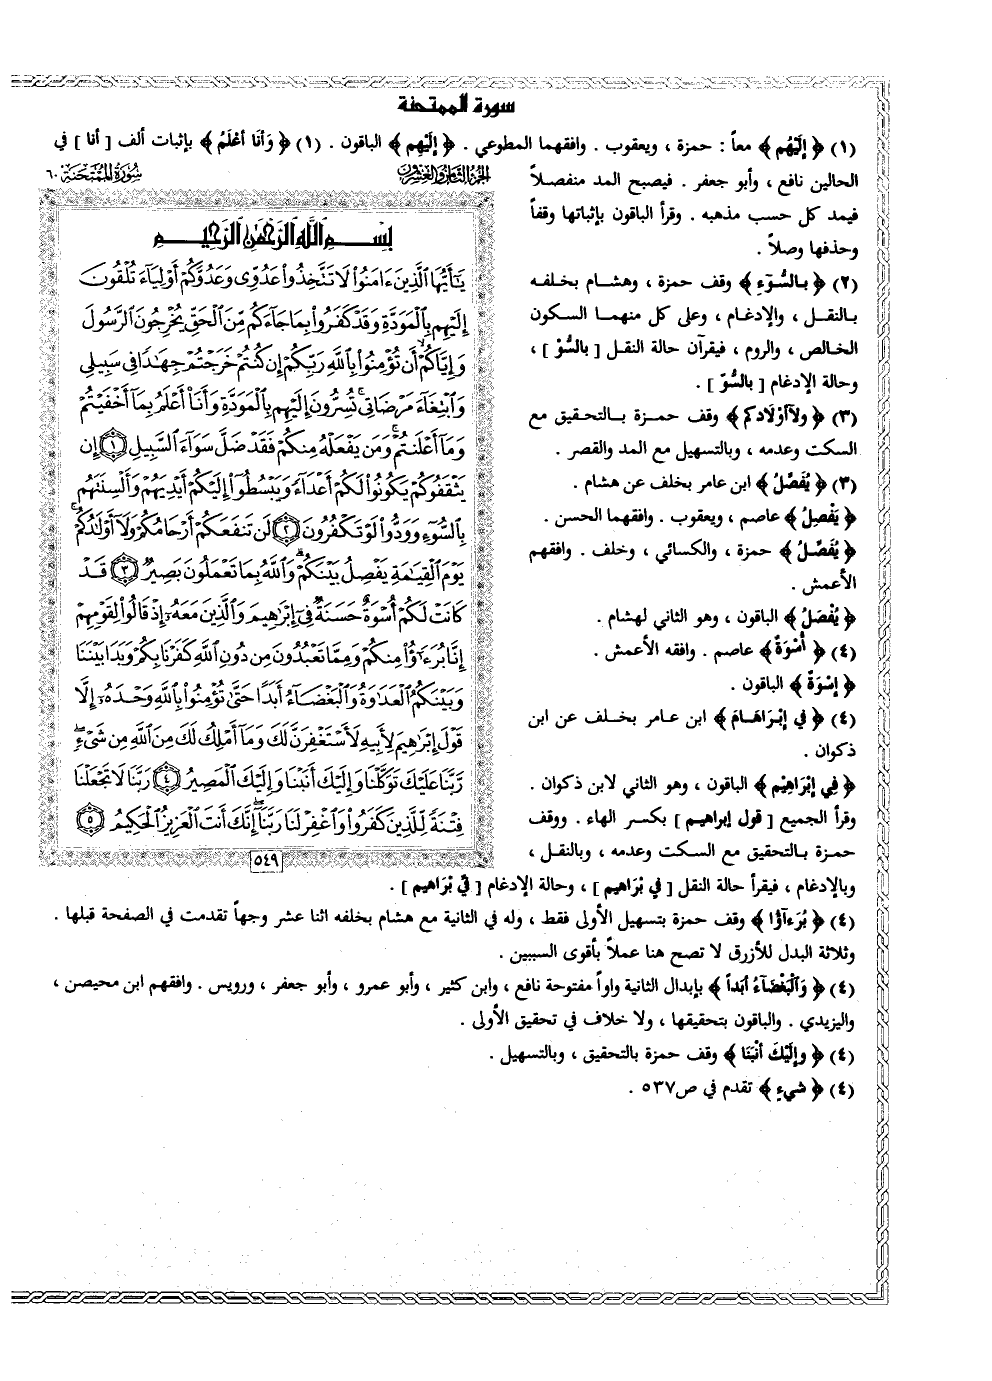 سورة الممتحنة
(١) ﴿ إِلَيْهُم ﴾ معاً : حمزة ، ويعقوب . وافقهما المطوعي . ﴿ إِلَيْهِم ﴾ الباقون . (١) ﴿ وَأَنَا أَعْلَمُ ﴾ بإثبات ألف [ أنا ] في
الحالين نافع ، وأبو جعفر . فيصبح المد منفصلاً
فيمد كل حسب مذهبه . وقرأ الباقون بإثباتها وقفاً
وحذفها وصلاً .
(٢) ﴿ بالسُّوٓءِ ﴾ وقف حمزة ، وهشام بخلفه
بالنقل ، والإدغام ، وعلى كل منهما السكون
الخالص ، والروم ، فيقرآن حالة النقل [ بالسُّوْ ] ،
وحالة الإدغام [ بالسُّوّ ] .
(٣) ﴿ ولآ أَوْلَادكم ﴾ وقف حمزة بالتحقيق مع
السكت وعدمه ، وبالتسهيل مع المد والقصر .
(٣) ﴿ يُفَصَّلُ ﴾ ابن عامر بخلف عن هشام .
﴿ يَفْصِلُ ﴾ عاصم ، ويعقوب . وافقهما الحسن .
﴿ يُفَصِّلُ ﴾ حمزة ، والكسائي ، وخلف . وافقهم
الأعمش .
﴿ يُفْصَلُ ﴾ الباقون ، وهو الثاني لهشام .
(٤) ﴿ أُسْوَةٌ ﴾ عاصم . وافقه الأعمش .
﴿ إِسْوَةٌ ﴾ الباقون .
(٤) ﴿ في إِبْرَاهَامَ ﴾ ابن عامر بخلف عن ابن
ذكوان .
﴿ فِي إِبْرَاهِيْم ﴾ الباقون ، وهو الثاني لابن ذكوان .
وقرأ الجميع [ قول إبراهيم ] بكسر الهاء . ووقف
حمزة بالتحقيق مع السكت وعدمه ، وبالنقل ،
وبالإدغام ، فيقرأ حالة النقل [ فِي بْرَاهيم ] ، وحالة الإدغام [ فِيّ بْرَاهيم ] .
(٤) ﴿ بُرَءَآؤُا ﴾ وقف حمزة بتسهيل الأولى فقط ، وله في الثانية مع هشام بخلفه اثنا عشر وجهاً تقدمت في الصفحة قبلها .
وثلاثة البدل للأزرق لا تصح هنا عملاً بأقوى السببين .
(٤) ﴿ وَالْبَغْضَآءُ أَبَداً ﴾ بإبدال الثانية واواً مفتوحة نافع ، وابن كثير ، وأبو عمرو ، وأبو جعفر ، ورويس . وافقهم ابن محيصن ،
واليزيدي . والباقون بتحقيقها ، ولا خلاف في تحقيق الأولى .
(٤) ﴿ وإِلَيْكَ أَنَبْنَا ﴾ وقف حمزة بالتحقيق ، وبالتسهيل .
(٤) ﴿ شَيءٍ ﴾ تقدم في ص٥٣٧ .
الجزء الثامن والعشرون سورة الممتحنة ٦٠
بسم الله الرحمن الرحيم
يَـٰٓأَيُّهَا ٱلَّذِينَ ءَامَنُوا۟ لَا تَتَّخِذُوا۟ عَدُوِّى وَعَدُوَّكُمْ أَوْلِيَآءَ تُلْقُونَ
إِلَيْهِم بِٱلْمَوَدَّةِ وَقَدْ كَفَرُوا۟ بِمَا جَآءَكُم مِّنَ ٱلْحَقِّ يُخْرِجُونَ ٱلرَّسُولَ
وَإِيَّاكُمْ أَن تُؤْمِنُوا۟ بِٱللَّهِ رَبِّكُمْ إِن كُنتُمْ خَرَجْتُمْ جِهَـٰدًا فِى سَبِيلِى
وَٱبْتِغَآءَ مَرْضَاتِى تُسِرُّونَ إِلَيْهِم بِٱلْمَوَدَّةِ وَأَنَا۠ أَعْلَمُ بِمَآ أَخْفَيْتُمْ
وَمَآ أَعْلَنتُمْ وَمَن يَفْعَلْهُ مِنكُمْ فَقَدْ ضَلَّ سَوَآءَ ٱلسَّبِيلِ ١ إِن
يَثْقَفُوكُمْ يَكُونُوا۟ لَكُمْ أَعْدَآءً وَيَبْسُطُوٓا۟ إِلَيْكُمْ أَيْدِيَهُمْ وَأَلْسِنَتَهُم
بِٱلسُّوٓءِ وَوَدُّوا۟ لَوْ تَكْفُرُونَ ٢ لَن تَنفَعَكُمْ أَرْحَامُكُمْ وَلَآ أَوْلَـٰدُكُمْ
يَوْمَ ٱلْقِيَـٰمَةِ يَفْصِلُ بَيْنَكُمْ وَٱللَّهُ بِمَا تَعْمَلُونَ بَصِيرٌ ٣ قَدْ
كَانَتْ لَكُمْ أُسْوَةٌ حَسَنَةٌ فِىٓ إِبْرَٰهِيمَ وَٱلَّذِينَ مَعَهُۥٓ إِذْ قَالُوا۟ لِقَوْمِهِمْ
إِنَّا بُرَءَٰٓؤُا۟ مِنكُمْ وَمِمَّا تَعْبُدُونَ مِن دُونِ ٱللَّهِ كَفَرْنَا بِكُمْ وَبَدَا بَيْنَنَا
وَبَيْنَكُمُ ٱلْعَدَٰوَةُ وَٱلْبَغْضَآءُ أَبَدًا حَتَّىٰ تُؤْمِنُوا۟ بِٱللَّهِ وَحْدَهُۥٓ إِلَّا
قَوْلَ إِبْرَٰهِيمَ لِأَبِيهِ لَأَسْتَغْفِرَنَّ لَكَ وَمَآ أَمْلِكُ لَكَ مِنَ ٱللَّهِ مِن شَىْءٍ
رَّبَّنَا عَلَيْكَ تَوَكَّلْنَا وَإِلَيْكَ أَنَبْنَا وَإِلَيْكَ ٱلْمَصِيرُ ٤ رَبَّنَا لَا تَجْعَلْنَا
فِتْنَةً لِّلَّذِينَ كَفَرُوا۟ وَٱغْفِرْ لَنَا رَبَّنَآ إِنَّكَ أَنتَ ٱلْعَزِيزُ ٱلْحَكِيمُ ٥
٥٤٩